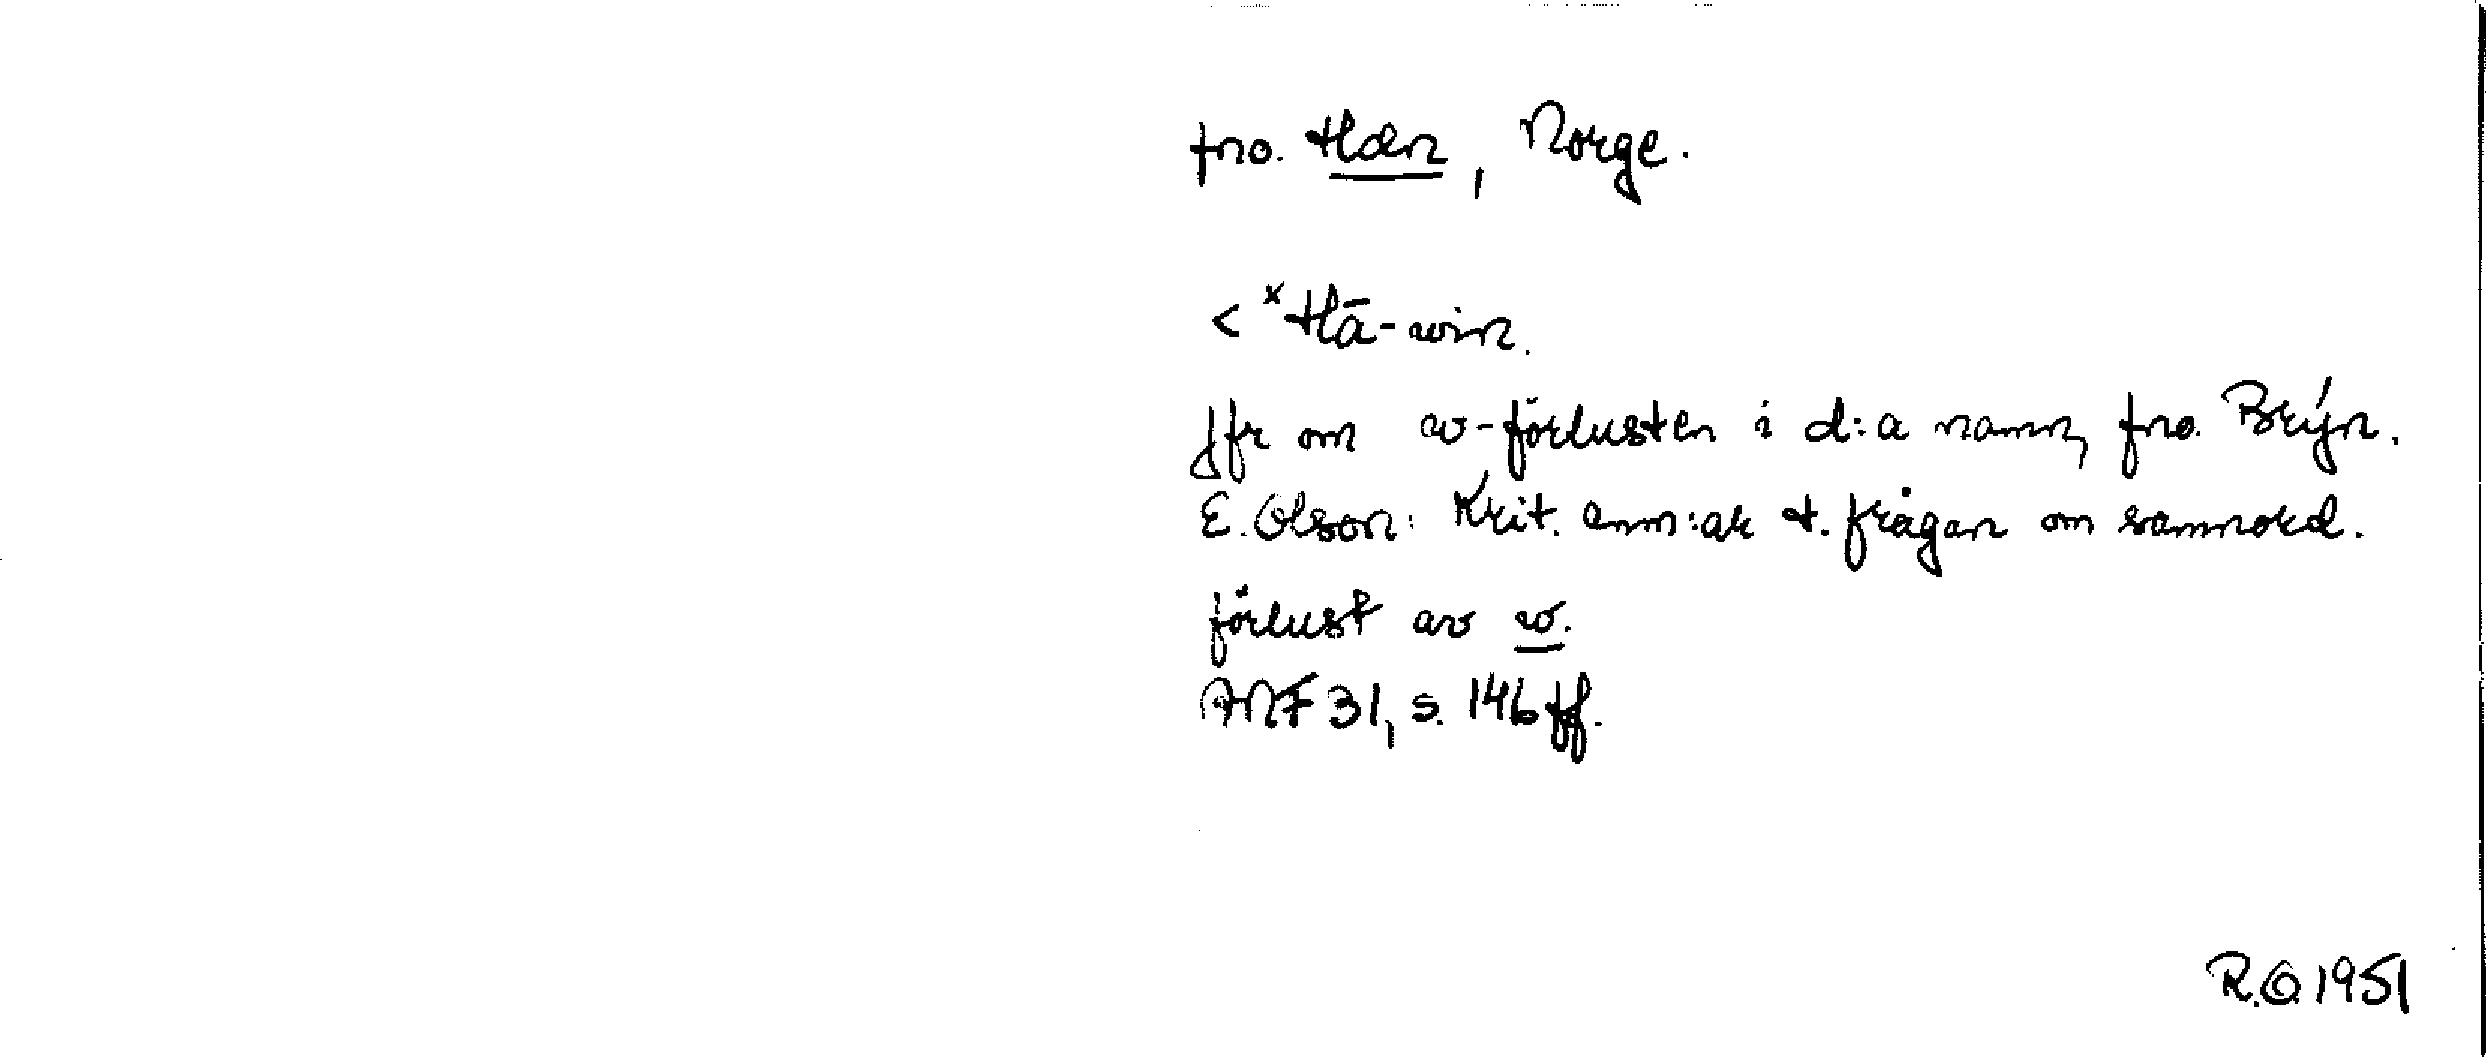 fno. Hæn, Norge.
< ˣHā-win.
Jfr om w-förlusten i d:a namn, fno. Brýn.
E. Olson: Krit. anm:ar t. frågan om samnord.
förlust av w.
ANF 31, s. 146 ff.
R.O 1951